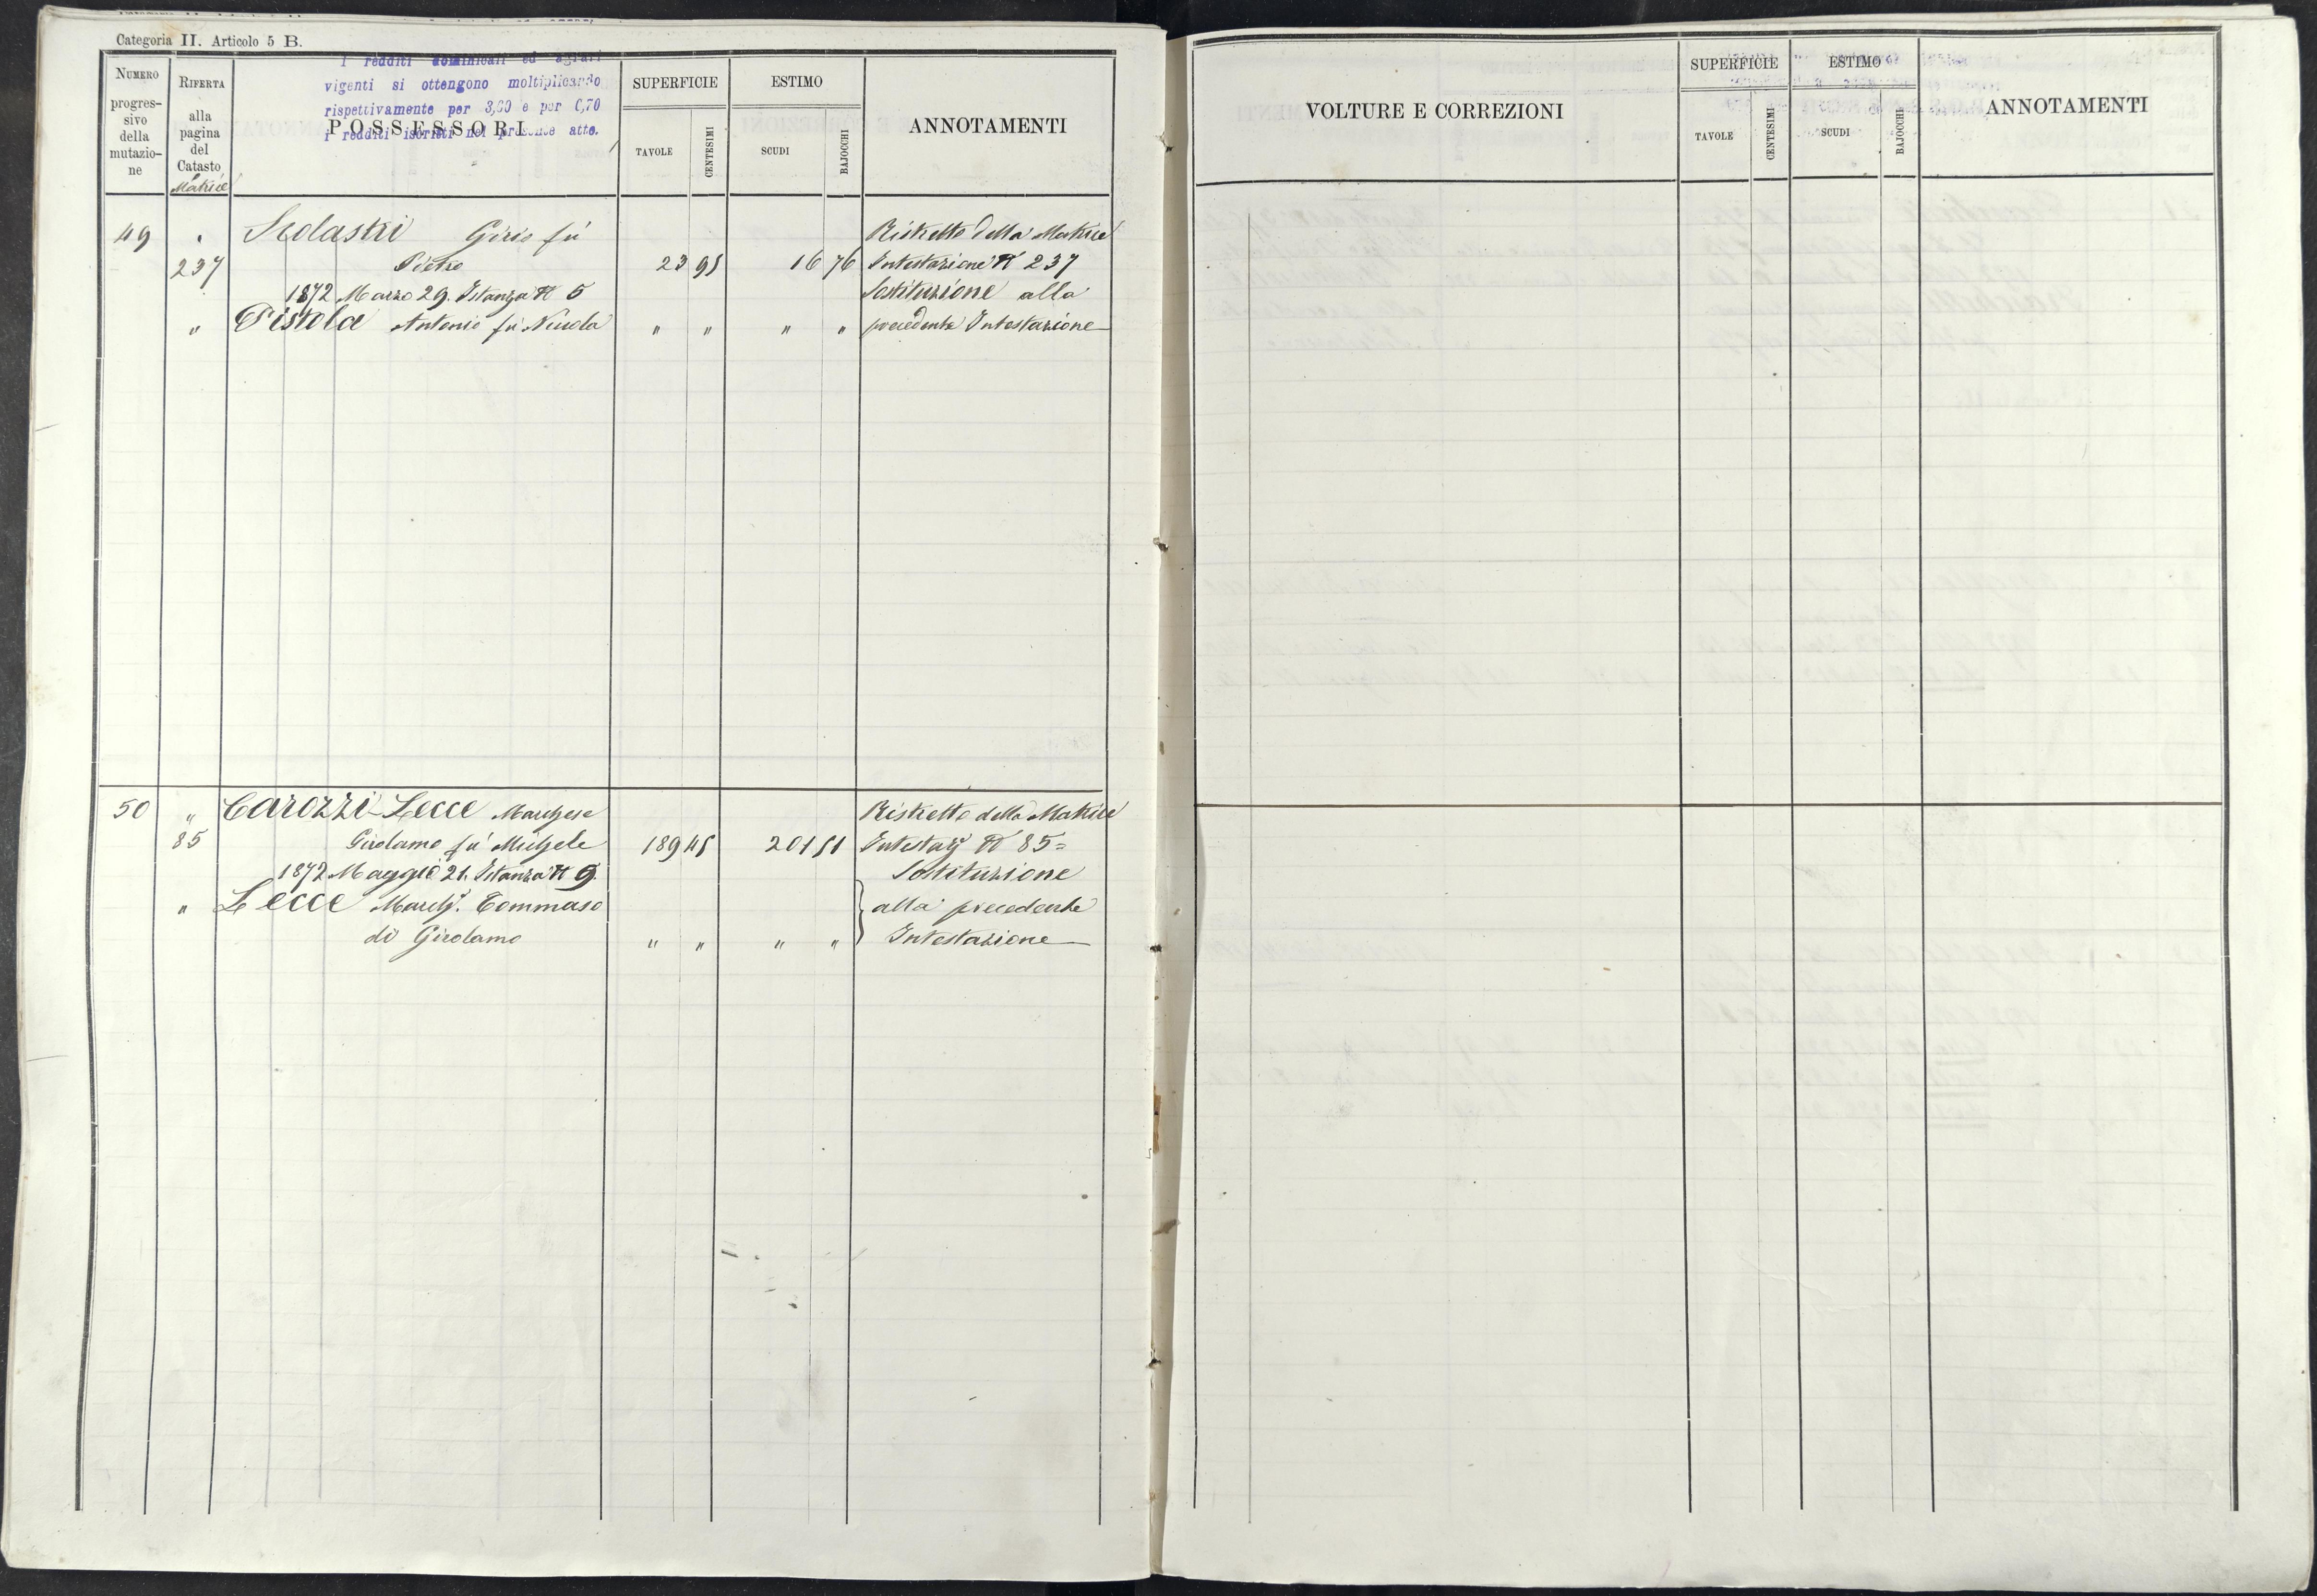 Categoria II. Articolo 5 B.
I redditi dominicali ed agrari
vigenti si ottengono moltiplicando
rispettivamente per 3,30 e per 0,70
i redditi iscritti nel presente atto.
NUMERO
progres-
sivo
della
mutazio-
ne
RIFERTA
alla
pagina
del
Catasto
Matrice
POSSESSORI
SUPERFICIE
TAVOLE
CENTESIMI
ESTIMO
SCUDI
BAJOCCHI
ANNOTAMENTI
49 Scolastri Girio fù Ristretto della Matrice
237 Pietro 23 95 16 76 Intestazione N 237
1872 Marzo 29. Istanza N 5 Sostituzione alla
" Pistola Antonio fù Nicola " " " " precedente Intestazione
50 " Carozzi Lecce Marchese Ristretto della Matrice
85 Girolamo fù Michele 189 45 201 51 N 85=
1872 Maggio 21. Istanza N 9. Sostituzione
" Lecce Tommaso alla precedente
di Girolamo " " " " Intestazione
VOLTURE E CORREZIONI
SUPERFICIE
TAVOLE
CENTESIMI
ESTIMO
SCUDI
BAJOCCHI
ANNOTAMENTI